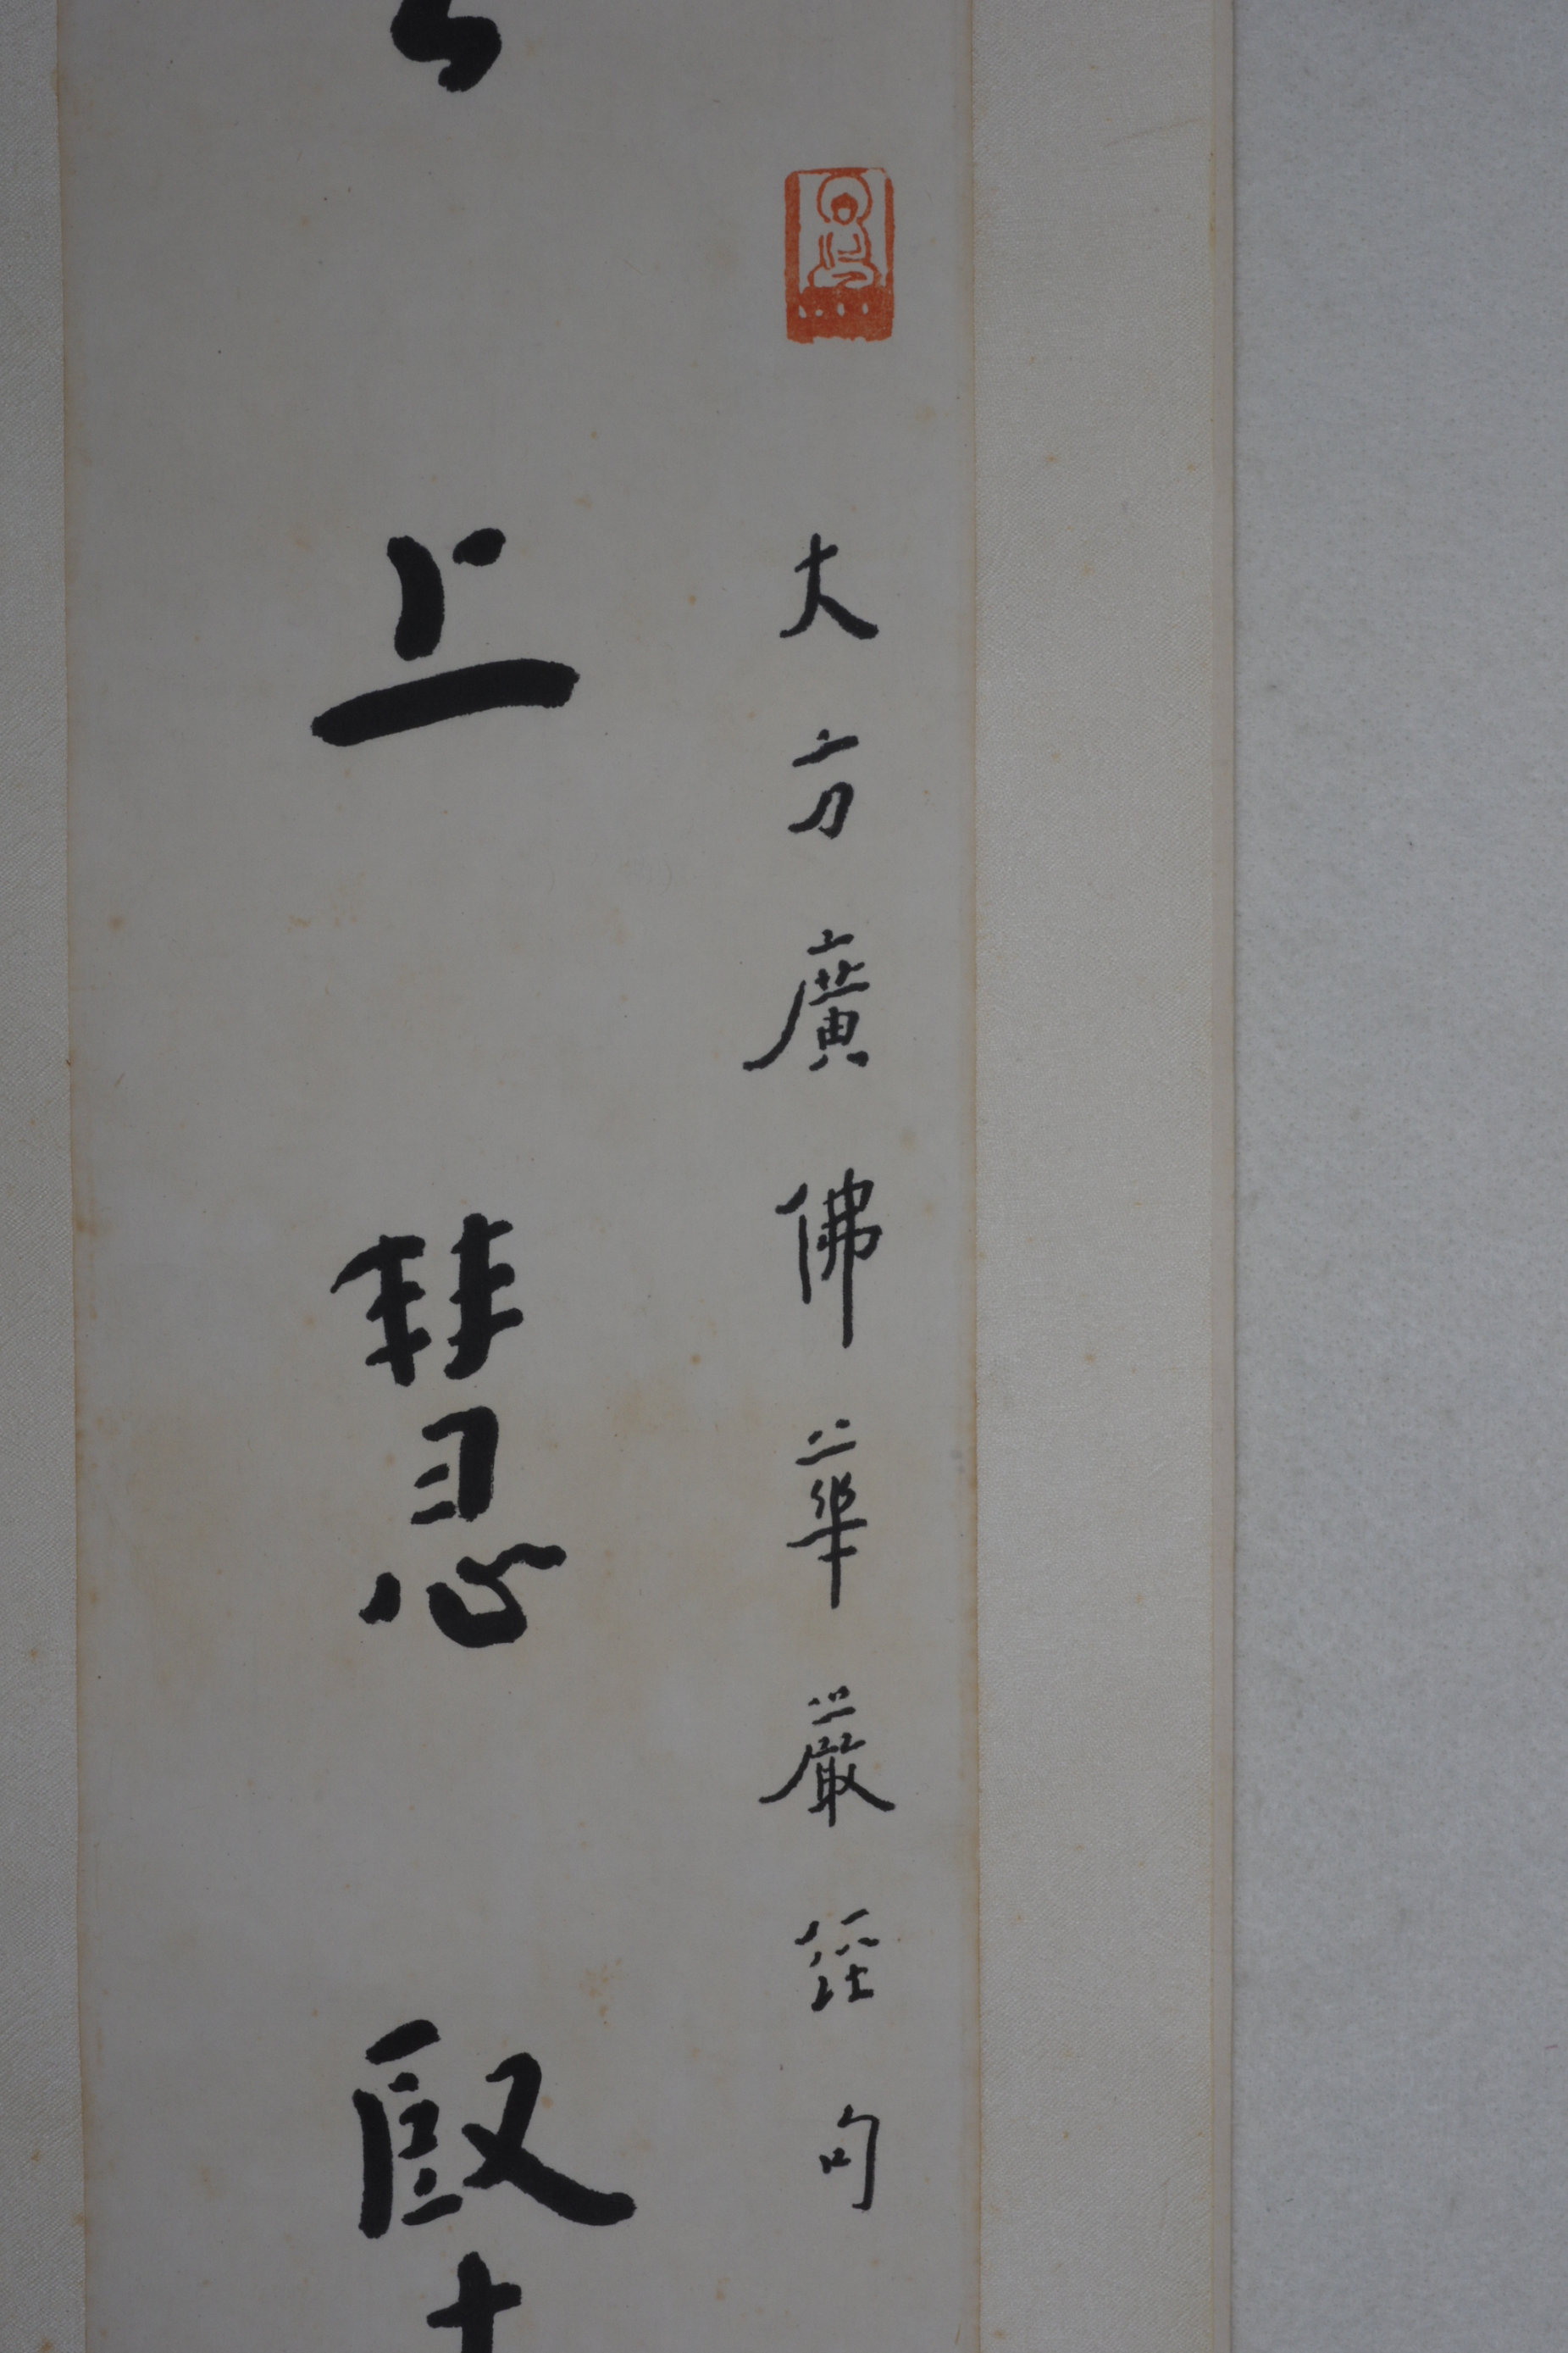 大方廣佛華嚴經句
上慧堅